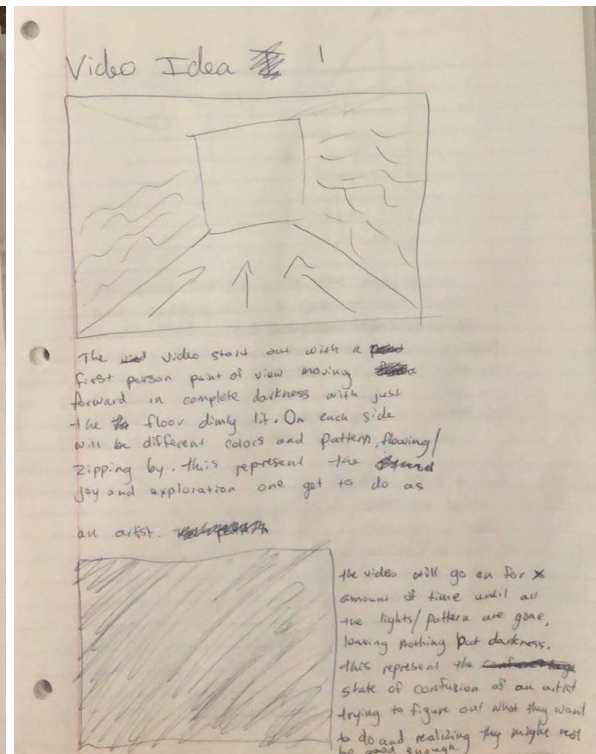 Video Idea 1
The video start out with a
first person point of view moving
forward in complete darkness with just
the floor dimly lit. On each side
will be different colors and pattern, flowing/
zipping by. this represent the
joy and exploration one get to do as
an artist.
the video will go on for x
amount of time until all
the lights/pattern are gone,
leaving nothing but darkness.
this represent the
state of confusion of an artist
trying to figure out what they want
to do and realizing they might not
be good enough.